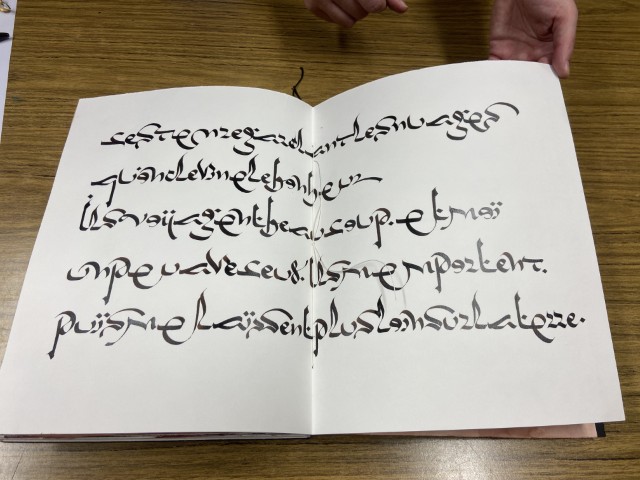 cest en regardant les nuages
quon devine le bonheur
Ils voÿagent beaucoup. et moï
un peu avec eux. Ils memportent.
puïs me laïssent plus loin sur la terre.